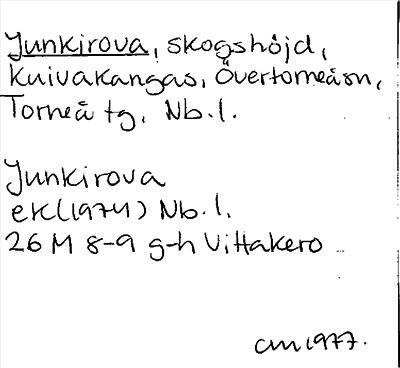 Junkirova, skogshöjd,
Kuivakangas, Övertorneåsn,
Torneå tg, Nb.l.
Junkirova
ek(1974) Nb.l.
26 M 8-9 g-h Vittakero
cm 1977.